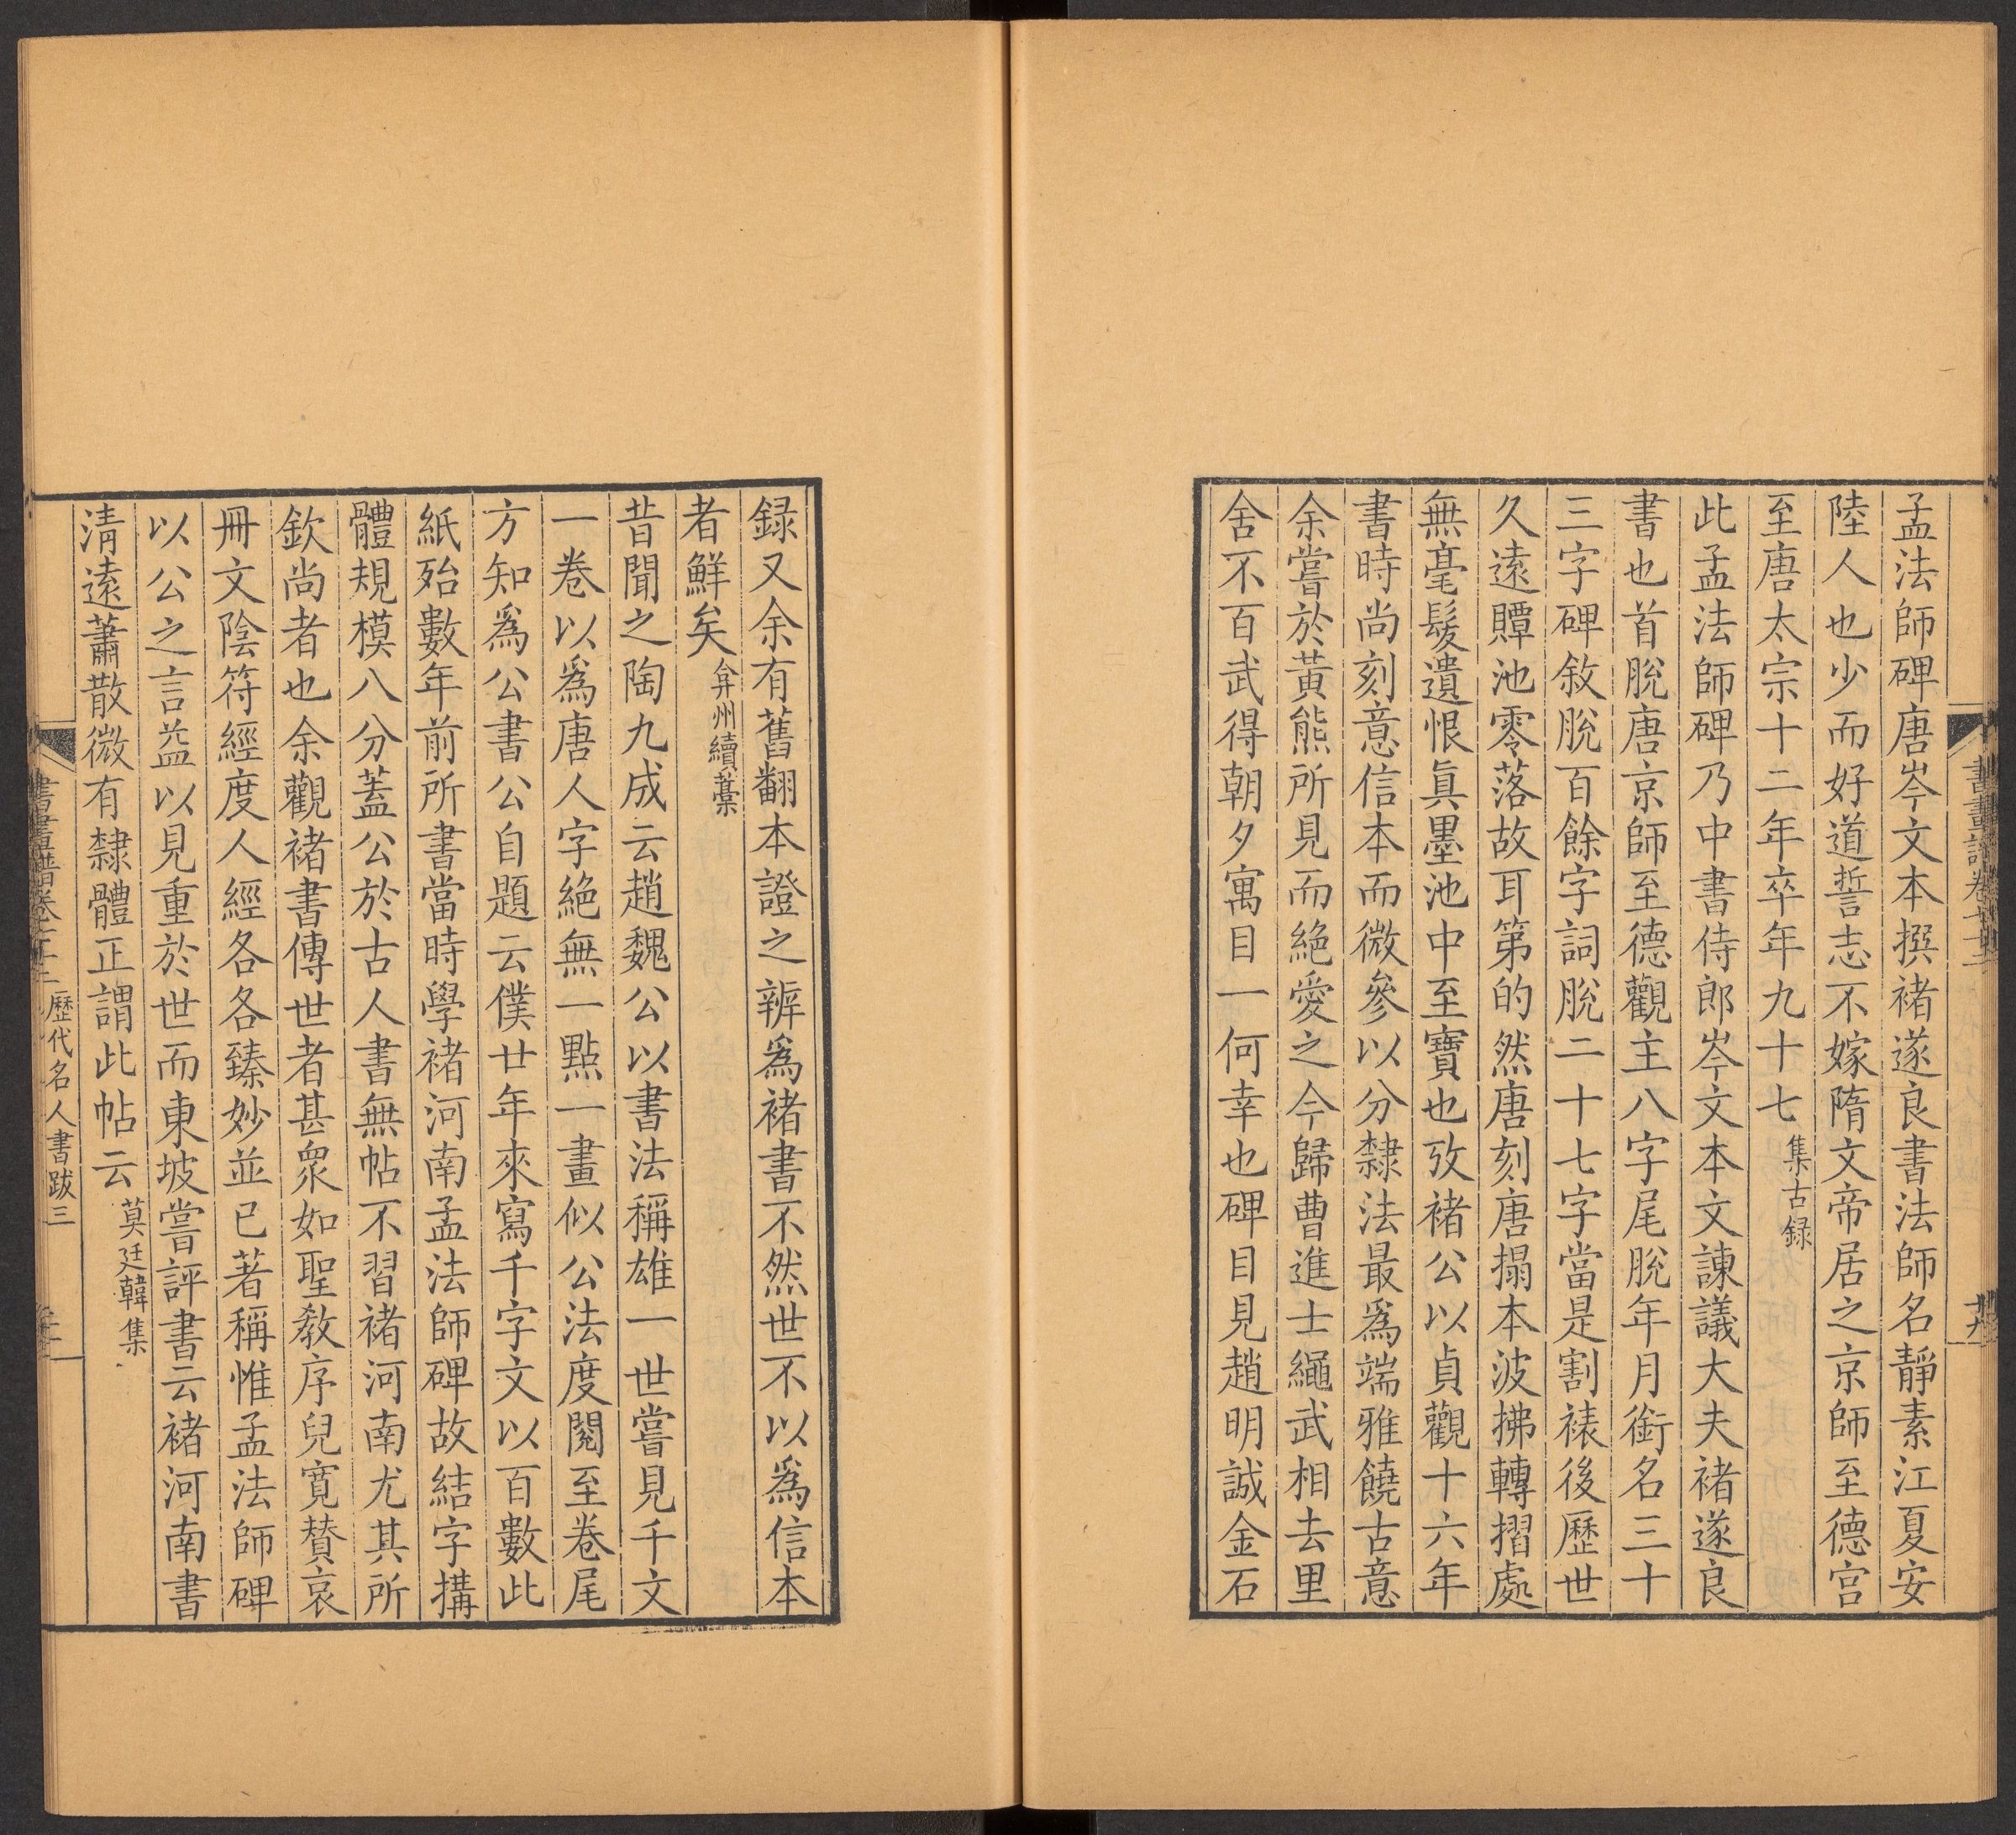 孟法師碑唐岑文本撰褚遂良書法師名靜素江夏安
陸人也少而好道誓志不嫁隋文帝居之京師至德宮
至唐太宗十二年卒年九十七集古録
此孟法師碑乃中書侍郎岑文本文諫議大夫褚遂良
書也首脫唐京師至德觀主八字尾脫年月銜名三十
三字碑敘脫百餘字詞脫二十七字當是割裱後歷世
久遠贉池零落故耳第的然唐刻唐搨本波拂轉摺處
無毫髮遺恨眞墨池中至寶也攷褚公以貞觀十六年
書時尚刻意信本而微參以分隸法最爲端雅饒古意
余嘗於黃熊所見而絶愛之今歸曹進士繩武相去里
舍不百武得朝夕寓目一何幸也碑目見趙明誠金石
録又余有舊翻本證之辨爲褚書不然世不以爲信本
者鮮矣弇州續藁
昔聞之陶九成云趙魏公以書法稱雄一世嘗見千文
一卷以爲唐人字絶無一點一畫似公法度閱至卷尾
方知爲公書公自題云僕廿年來寫千字文以百數此
紙殆數年前所書當時學褚河南孟法師碑故結字搆
體規模八分蓋公於古人書無帖不習褚河南尤其所
欽尚者也余觀褚書傳世者甚衆如聖敎序兒寬贊哀
冊文陰符經度人經各各臻妙並已著稱惟孟法師碑
以公之言益以見重於世而東坡嘗評書云褚河南書
淸遠蕭散微有隸體正謂此帖云莫廷韓集
書畫譜卷七十二 歷代名人書跋三